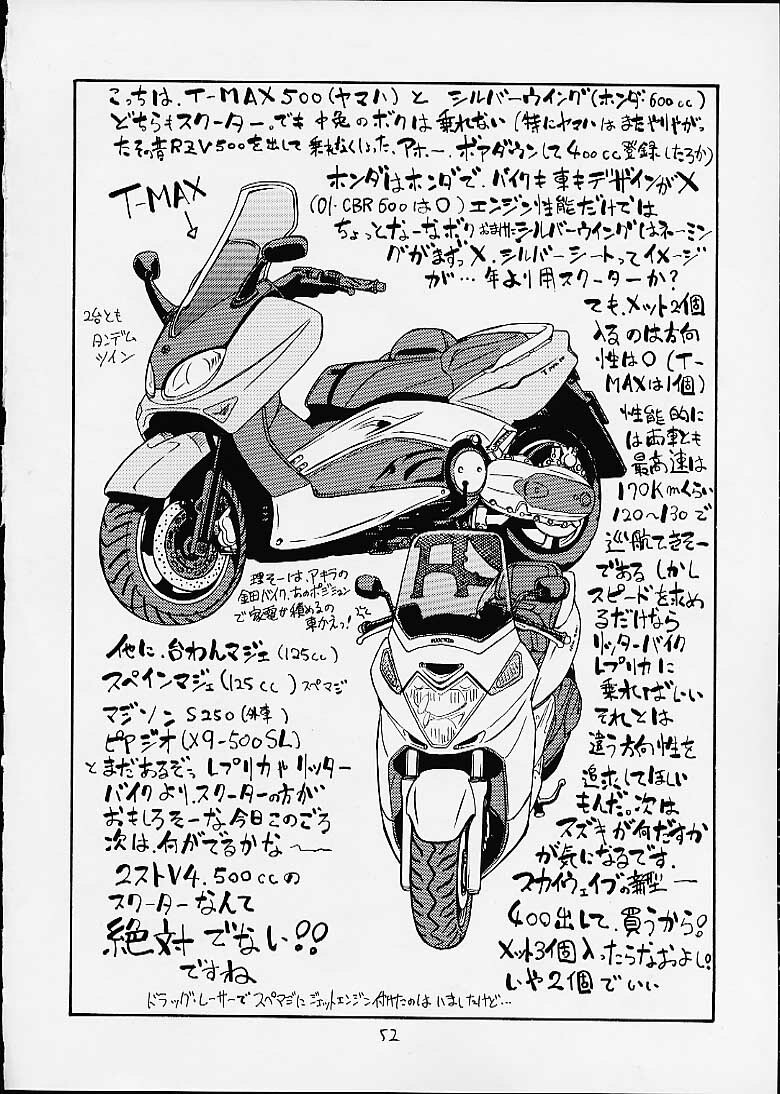 こっちは、T-MAX500(ヤマハ)と シルバーウイング(ホンダ・600cc)
どちらもスクーター。でも中免のボクは乗れない(特にヤマハはまたやりやがっ
たその昔RZV500を出して乗れなくしった、アホー、ボアダウンして400cc登録したろか)
ホンダはホンダで、バイクも車もデザインが×
(01・CBR600は○)エンジン性能だけでは
ちょっとなーなボク おまけにシルバーウイングはネーミン
グがまずっ×、シルバーシートってイメージ
が…年より用スクーターか?
T-MAX
2台とも
タンデム
ツイン
ても、メット2個
入るのは方向
性は○(T-
MAXは1個)
性能的に
は両車とも
最高速は
170Kmくらい
120〜130で
巡航できそー
である しかし
スピードを求め
るだけなら
リッターバイク
レプリカに
乗ればいい
それとは
違う方向性を
追求してほしい
もんだ。次は
スズキが何だすか
が気になるです.
スカイウェイブの新型ー
400出して、買うから!
メット3個入ったらなおよし!
いや2個でいい
理そーは、アキラの
金田バイク、あのポジション
で家電が積めるの
車かえっ!
他に、台わんマジェ(125cc)
スペインマジェ(125cc)スペマジ
マジソン S250(外車)
ピヤジオ(X9-500SL)
とまだあるぞっ レプリカやリッター
バイクより、スクーターの方が
おもしろそーな、今日このごろ
次は、何がでるかな〜
2ストV4.500ccの
スクーターなんて
絶対でない!!
ですね
ドラッグ・レーサーでスペマジにジェットエンジン付けたのはいましたけど…
52